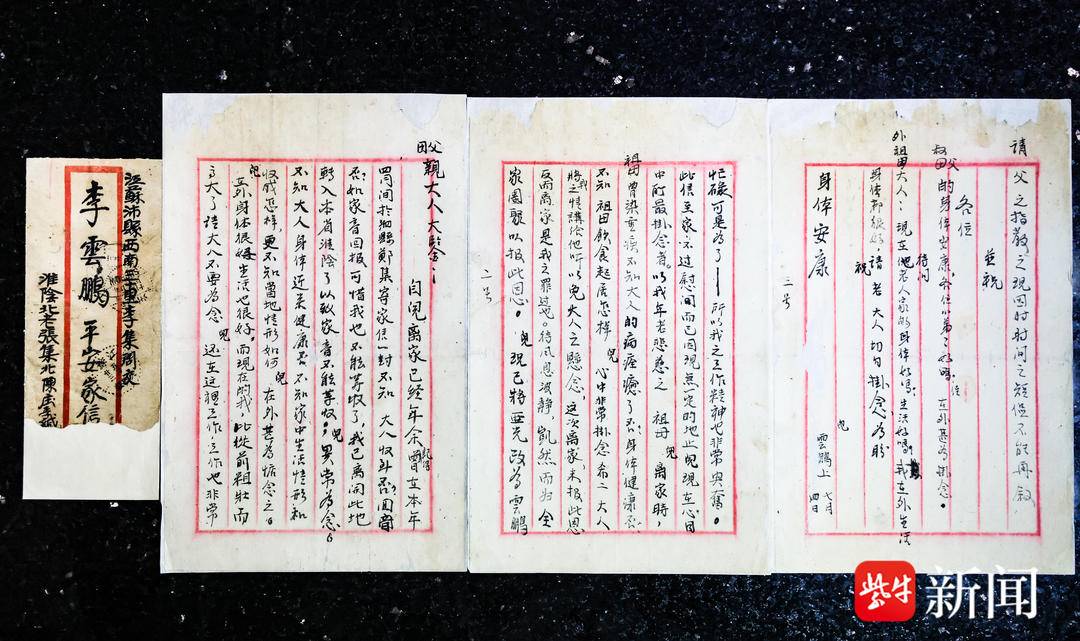 江蘇沛縣西南三十里李集周交
李雲鵬 平安家信
淮陰北老張集北陳
父母親大人大鑒：
自兒離家已經年余曾在本年
四月间於泗縣鄭集寄家信一封不知大人收斗否回音
否如家音回报可惜我也不能等收了，我已离開此地
轉入本省淮陰了以致家音不能等收；兒異常为念。
不知大人身体近来健康否不知家中生活情形和
收成怎样，更不知當地情形如何兒在外甚為惦念之。
兒在外身体很好生活也很好。而現在的我，比從前粗壮而
高大了請大人不要為念兒还在这裡工作，工作也非常
忙碌可是为了——所以我之工作精神也非常兴奮。
此信至家不过慰问而已因現無定的地止兒現在心目
中所最掛念者。以我年老慈悲之祖母兒離家時，
祖母曾染重病不知大人的病痊癒了否身体健康否
不知祖母飲食起居怎样兒心中非常掛念希二大人
將我之情講给他听以免大人之懸念，这次離家未报此恩
反而离家是我之罪过也。待风息波静，凯然而归全
家團聚以报此恩。兒現已将亚光改为雲鹏
二号
請
父之指教之現因时时间之短促不能再叙
並祝
各位
叔父母的身体安康，各位小弟之好嗎。侄在外甚为掛念。
待问
外祖母大人：現在他老人家的身体好嗎，生活好嗎，我在外生活
身体都很好請老大人切勿掛念为盼
祝
身体安康
兒
雲鵬上
七月
四日
三号
紫牛新闻